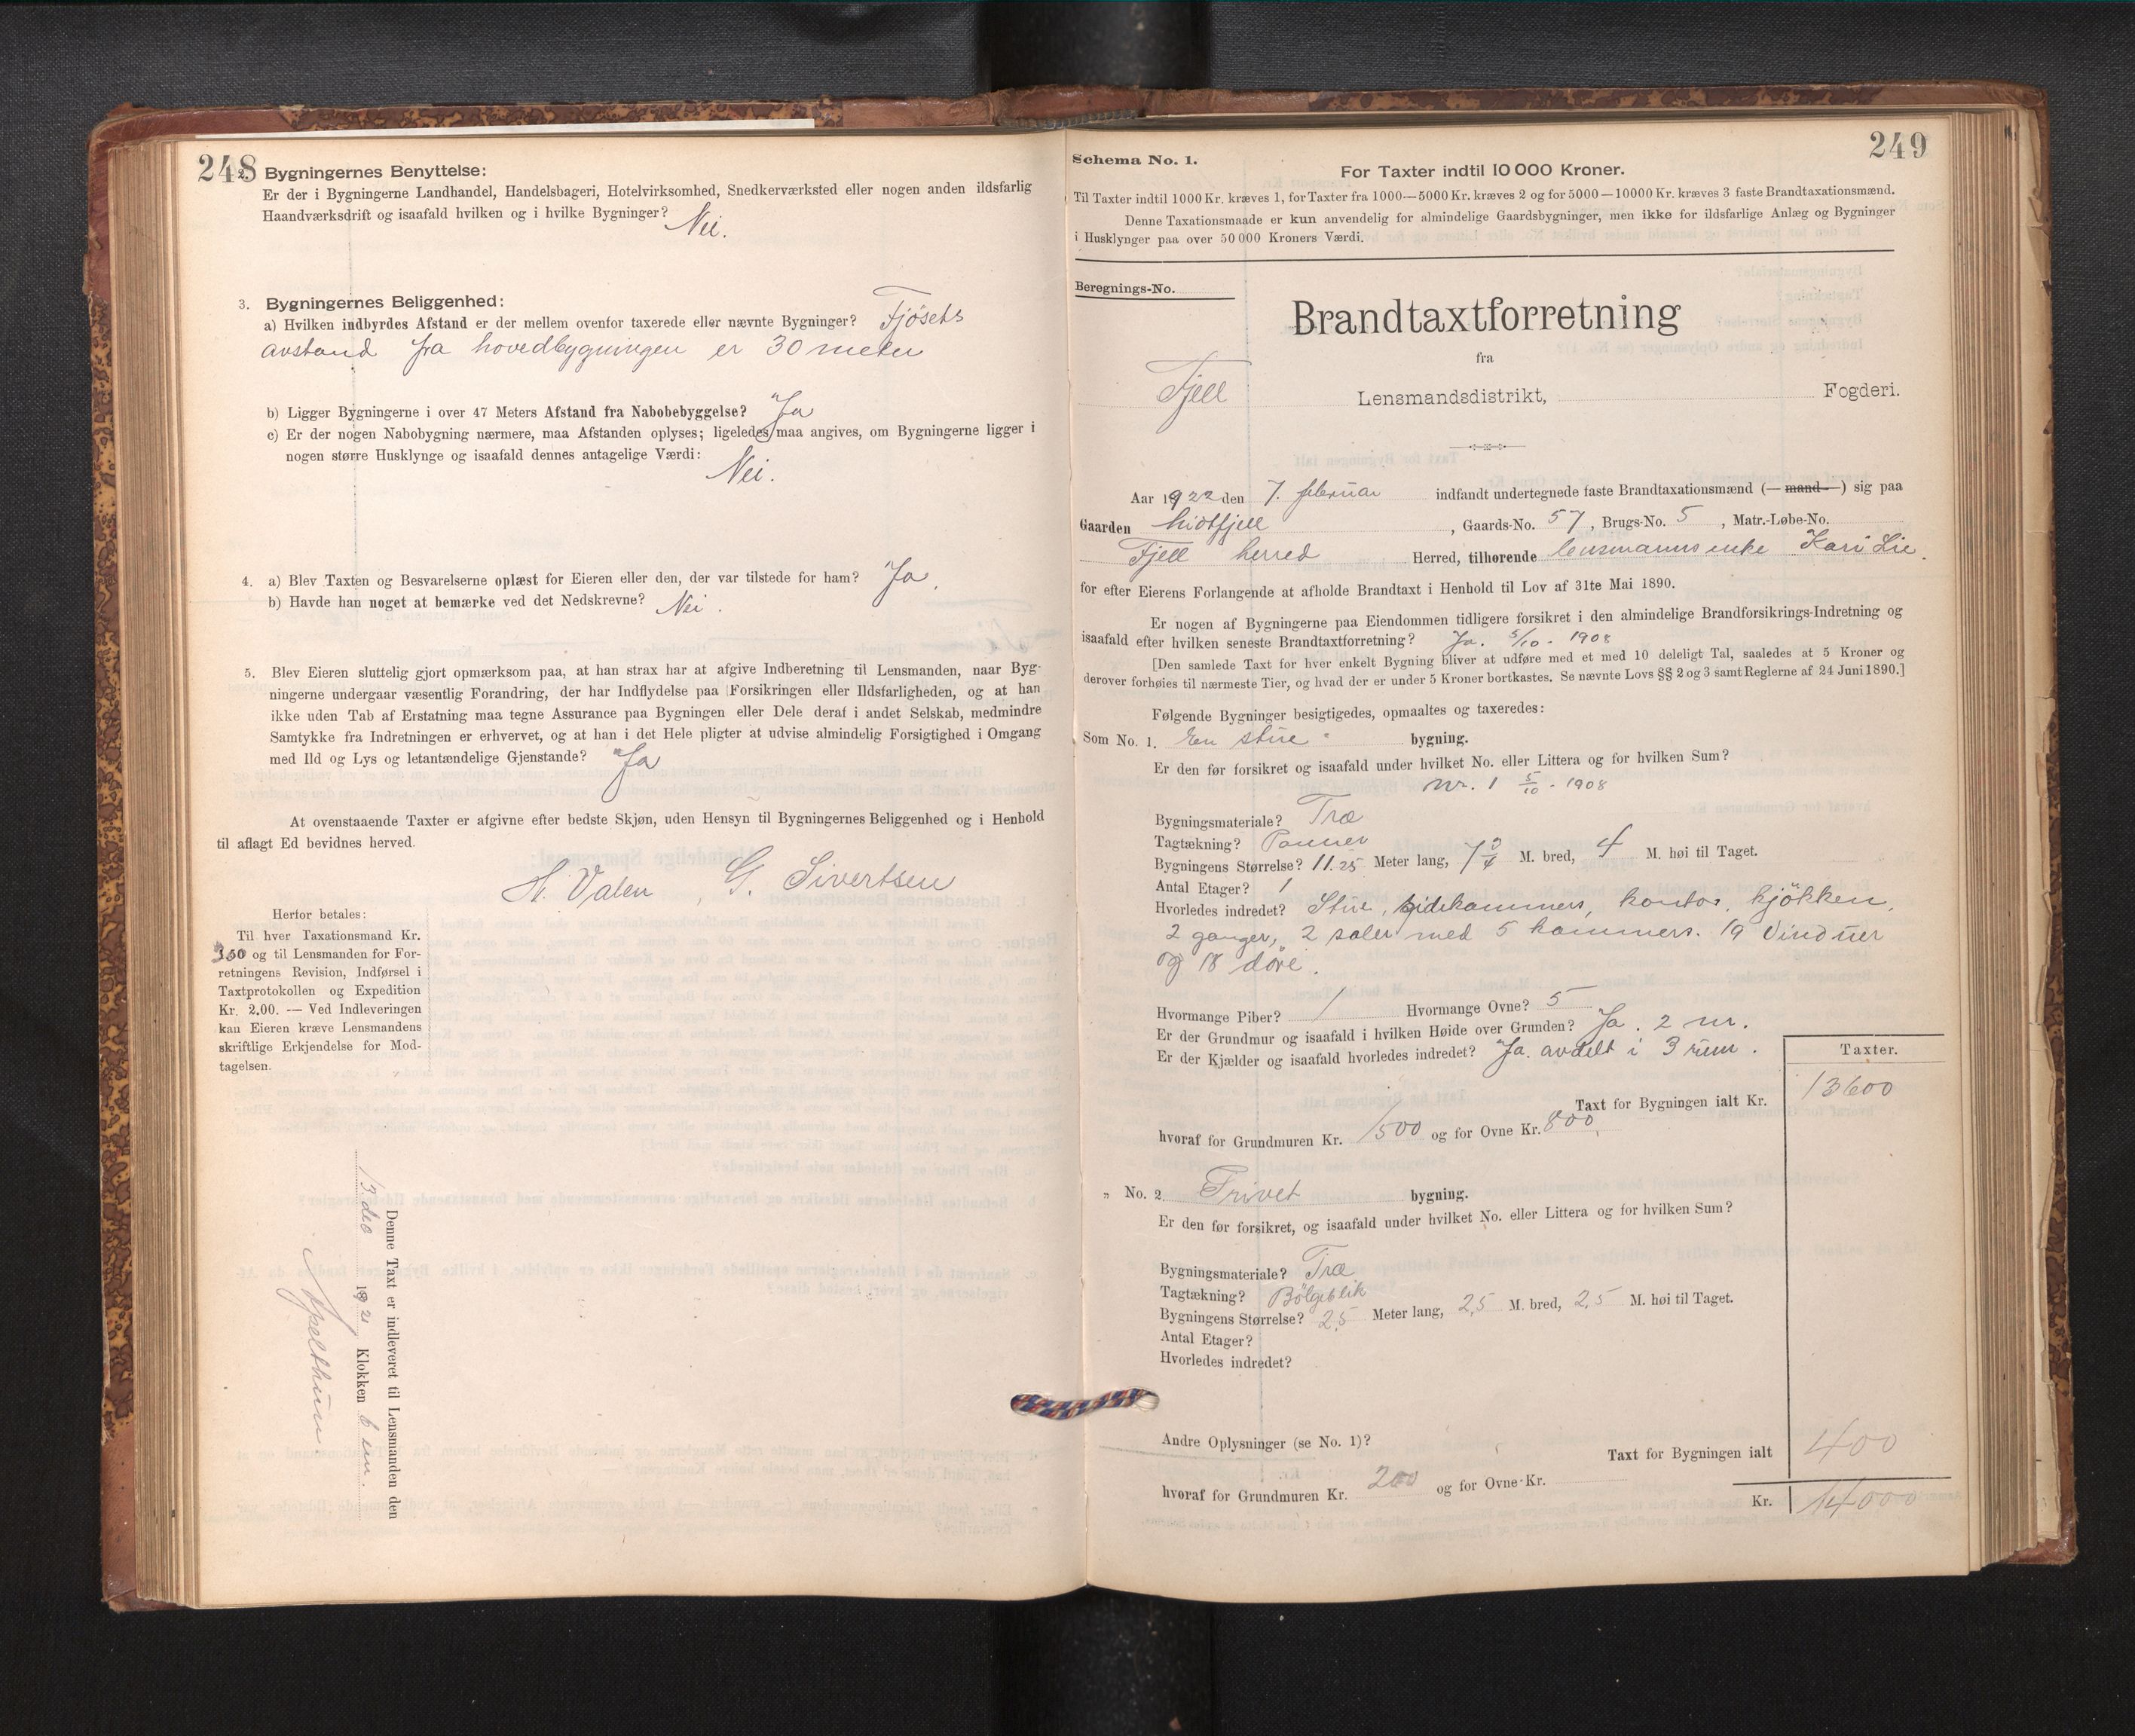 248
2. Bygningernes Benyttelse:
Er der i Bygningerne Landhandel, Handelsbageri, Hotelvirksomhed, Snedkerværksted eller nogen anden ildsfarlig
Haandværksdrift og isaafald hvilken og i hvilke Bygninger? Nei.
3. Bygningernes Beliggenhed:
a) Hvilken indbyrdes Afstand er der mellem ovenfor taxerede eller nævnte Bygninger? Fjösets
avstand fra hovedbygningen er 30 meter
b) Ligger Bygningerne i over 47 Meters Afstand fra Nabobebyggelse? Ja
c) Er der nogen Nabobygning nærmere, maa Afstanden oplyses; ligeledes maa angives, om Bygningerne ligger i
nogen større Husklynge og isaafald dennes antagelige Værdi: Nei.
4. a) Blev Taxten og Besvarelserne oplæst for Eieren eller den, der var tilstede for ham? Ja.
b) Havde han noget at bemærke ved det Nedskrevne? Nei.
5. Blev Eieren sluttelig gjort opmærksom paa, at han strax har at afgive Indberetning til Lensmanden, naar Byg-
ningerne undergaar væsentlig Forandring, der har Indflydelse paa Forsikringen eller Ildsfarligheden, og at han
ikke uden Tab af Erstatning maa tegne Assurance paa Bygningen eller Dele deraf i andet Selskab, medmindre
Samtykke fra Indretningen er erhvervet, og at han i det Hele pligter at udvise almindelig Forsigtighed i Omgang
med Ild og Lys og letantændelige Gjenstande? Ja
At ovenstaaende Taxter er afgivne efter bedste Skjøn, uden Hensyn til Bygningernes Beliggenhed og i Henhold
til aflagt Ed bevidnes herved.
H. Valen, G. Sivertsen
Herfor betales:
Til hver Taxationsmand Kr.
3.50 og til Lensmanden for For-
retningens Revision, Indførsel i
Taxtprotokollen og Expedition
Kr. 2.00. — Ved Indleveringen
kan Eieren kræve Lensmandens
skriftlige Erkjendelse for Mod-
tagelsen.
Denne Taxt er indleveret til Lensmanden den
13 des 1921 Klokken 6 em.
249
Schema No. 1.
For Taxter indtil 10 000 Kroner.
Til Taxter indtil 1000 Kr. kræves 1, for Taxter fra 1000—5000 Kr. kræves 2 og for 5000—10000 Kr. kræves 3 faste Brandtaxationsmænd.
Denne Taxationsmaade er kun anvendelig for almindelige Gaardsbygninger, men ikke for ildsfarlige Anlæg og Bygninger
i Husklynger paa over 50 000 Kroners Værdi.
Beregnings-No.
Brandtaxtforretning
fra
Fjell Lensmandsdistrikt, Fogderi.
Aar 1922 den 7. februar indfandt undertegnede faste Brandtaxationsmænd (— mand —) sig paa
Gaarden Midtfjell, Gaards-No. 57, Brugs-No. 5, Matr.-Løbe-No.
Fjell herred Herred, tilhørende lensmanns enke Kari Lie.
for efter Eierens Forlangende at afholde Brandtaxt i Henhold til Lov af 31te Mai 1890.
Er nogen af Bygningerne paa Eiendommen tidligere forsikret i den almindelige Brandforsikrings-Indretning og
isaafald efter hvilken seneste Brandtaxtforretning? Ja. 5/10 - 1908
[Den samlede Taxt for hver enkelt Bygning bliver at udføre med et med 10 deleligt Tal, saaledes at 5 Kroner og
derover forhøies til nærmeste Tier, og hvad der er under 5 Kroner bortkastes. Se nævnte Lovs §§ 2 og 3 samt Reglerne af 24 Juni 1890.]
Følgende Bygninger besigtigedes, opmaaltes og taxeredes:
Som No. 1. En stue bygning.
Er den før forsikret og isaafald under hvilket No. eller Littera og for hvilken Sum?
nr. 1 5/10 - 1908
Bygningsmateriale? Træ
Tagtækning? Panner
Bygningens Størrelse? 11.25 Meter lang, 7 3/4 M. bred, 4 M. høi til Taget.
Antal Etager? 1
Hvorledes indredet? Stue, sidekammers, kontor, kjökken,
2 ganger, 2 saler med 5 kammers. 19 Vinduer
og 18 döre.
Hvormange Piber? 1 Hvormange Ovne? 5
Er der Grundmur og isaafald i hvilken Høide over Grunden? Ja. 2 m.
Er der Kjælder og isaafald hvorledes indredet? Ja. avdelt i 3 rum.
Taxter.
Taxt for Bygningen ialt Kr. 13600
hvoraf for Grundmuren Kr. 1500 og for Ovne Kr. 800,
„ No. 2 Privet bygning.
Er den før forsikret, og isaafald under hvilket No. eller Littera og for hvilken Sum?
Bygningsmateriale? Træ
Tagtækning? Bölgeblik
Bygningens Størrelse? 2,5 Meter lang, 2,5 M. bred, 2,5 M. høi til Taget.
Antal Etager?
Hvorledes indredet?
Andre Oplysninger (se No. 1)?
Taxt for Bygningen ialt 400
hvoraf for Grundmuren Kr. 200 og for Ovne Kr.
Kr. 14000